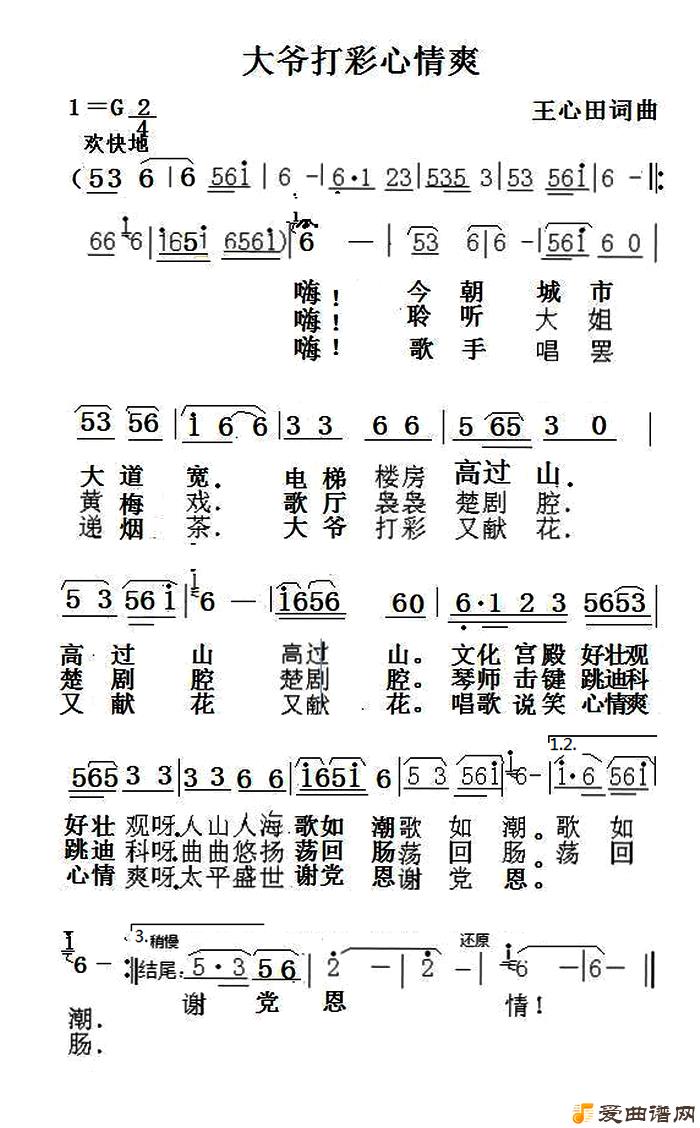 大爷打彩心情爽
1=G 2/4
王心田词曲
欢快地
(53 6 | 6 56i | 6 - | 6·1 23 | 535 3 | 53 56i | 6 - |:
66 6 | i65i 656i) | 6 — | 53 6 | 6 - | 56i 6 0 |
嗨! 今朝城市
嗨! 聆听大姐
嗨! 歌手唱罢
53 56 | i 6 6 | 3 3 6 6 | 5 65 3 0 |
大道宽. 电梯楼房高过山.
黄梅戏. 歌厅袅袅楚剧腔.
递烟茶. 大爷打彩又献花.
5 3 56 i | 6 — | i656 60 | 6·1 2 3 5653 |
高过山高过山。文化宫殿好壮观
楚剧腔楚剧腔。琴师击键跳迪科
又献花又献花。唱歌说笑心情爽
1.2.
565 3 3 | 3 3 6 6 | i65i 6 | 5 3 56i | 6 - | i·6 56i |
好壮观呀.人山人海歌如潮歌如潮。歌如
跳迪科呀.曲曲悠扬荡回肠荡回肠。荡回
心情爽呀.太平盛世谢党恩谢党恩。
3. 稍慢
还原
6 - :| 结尾: 5·3 56 | 2 — | 2 - | 6 - | 6 - ||
潮. 谢党恩情!
肠.
爱曲谱网